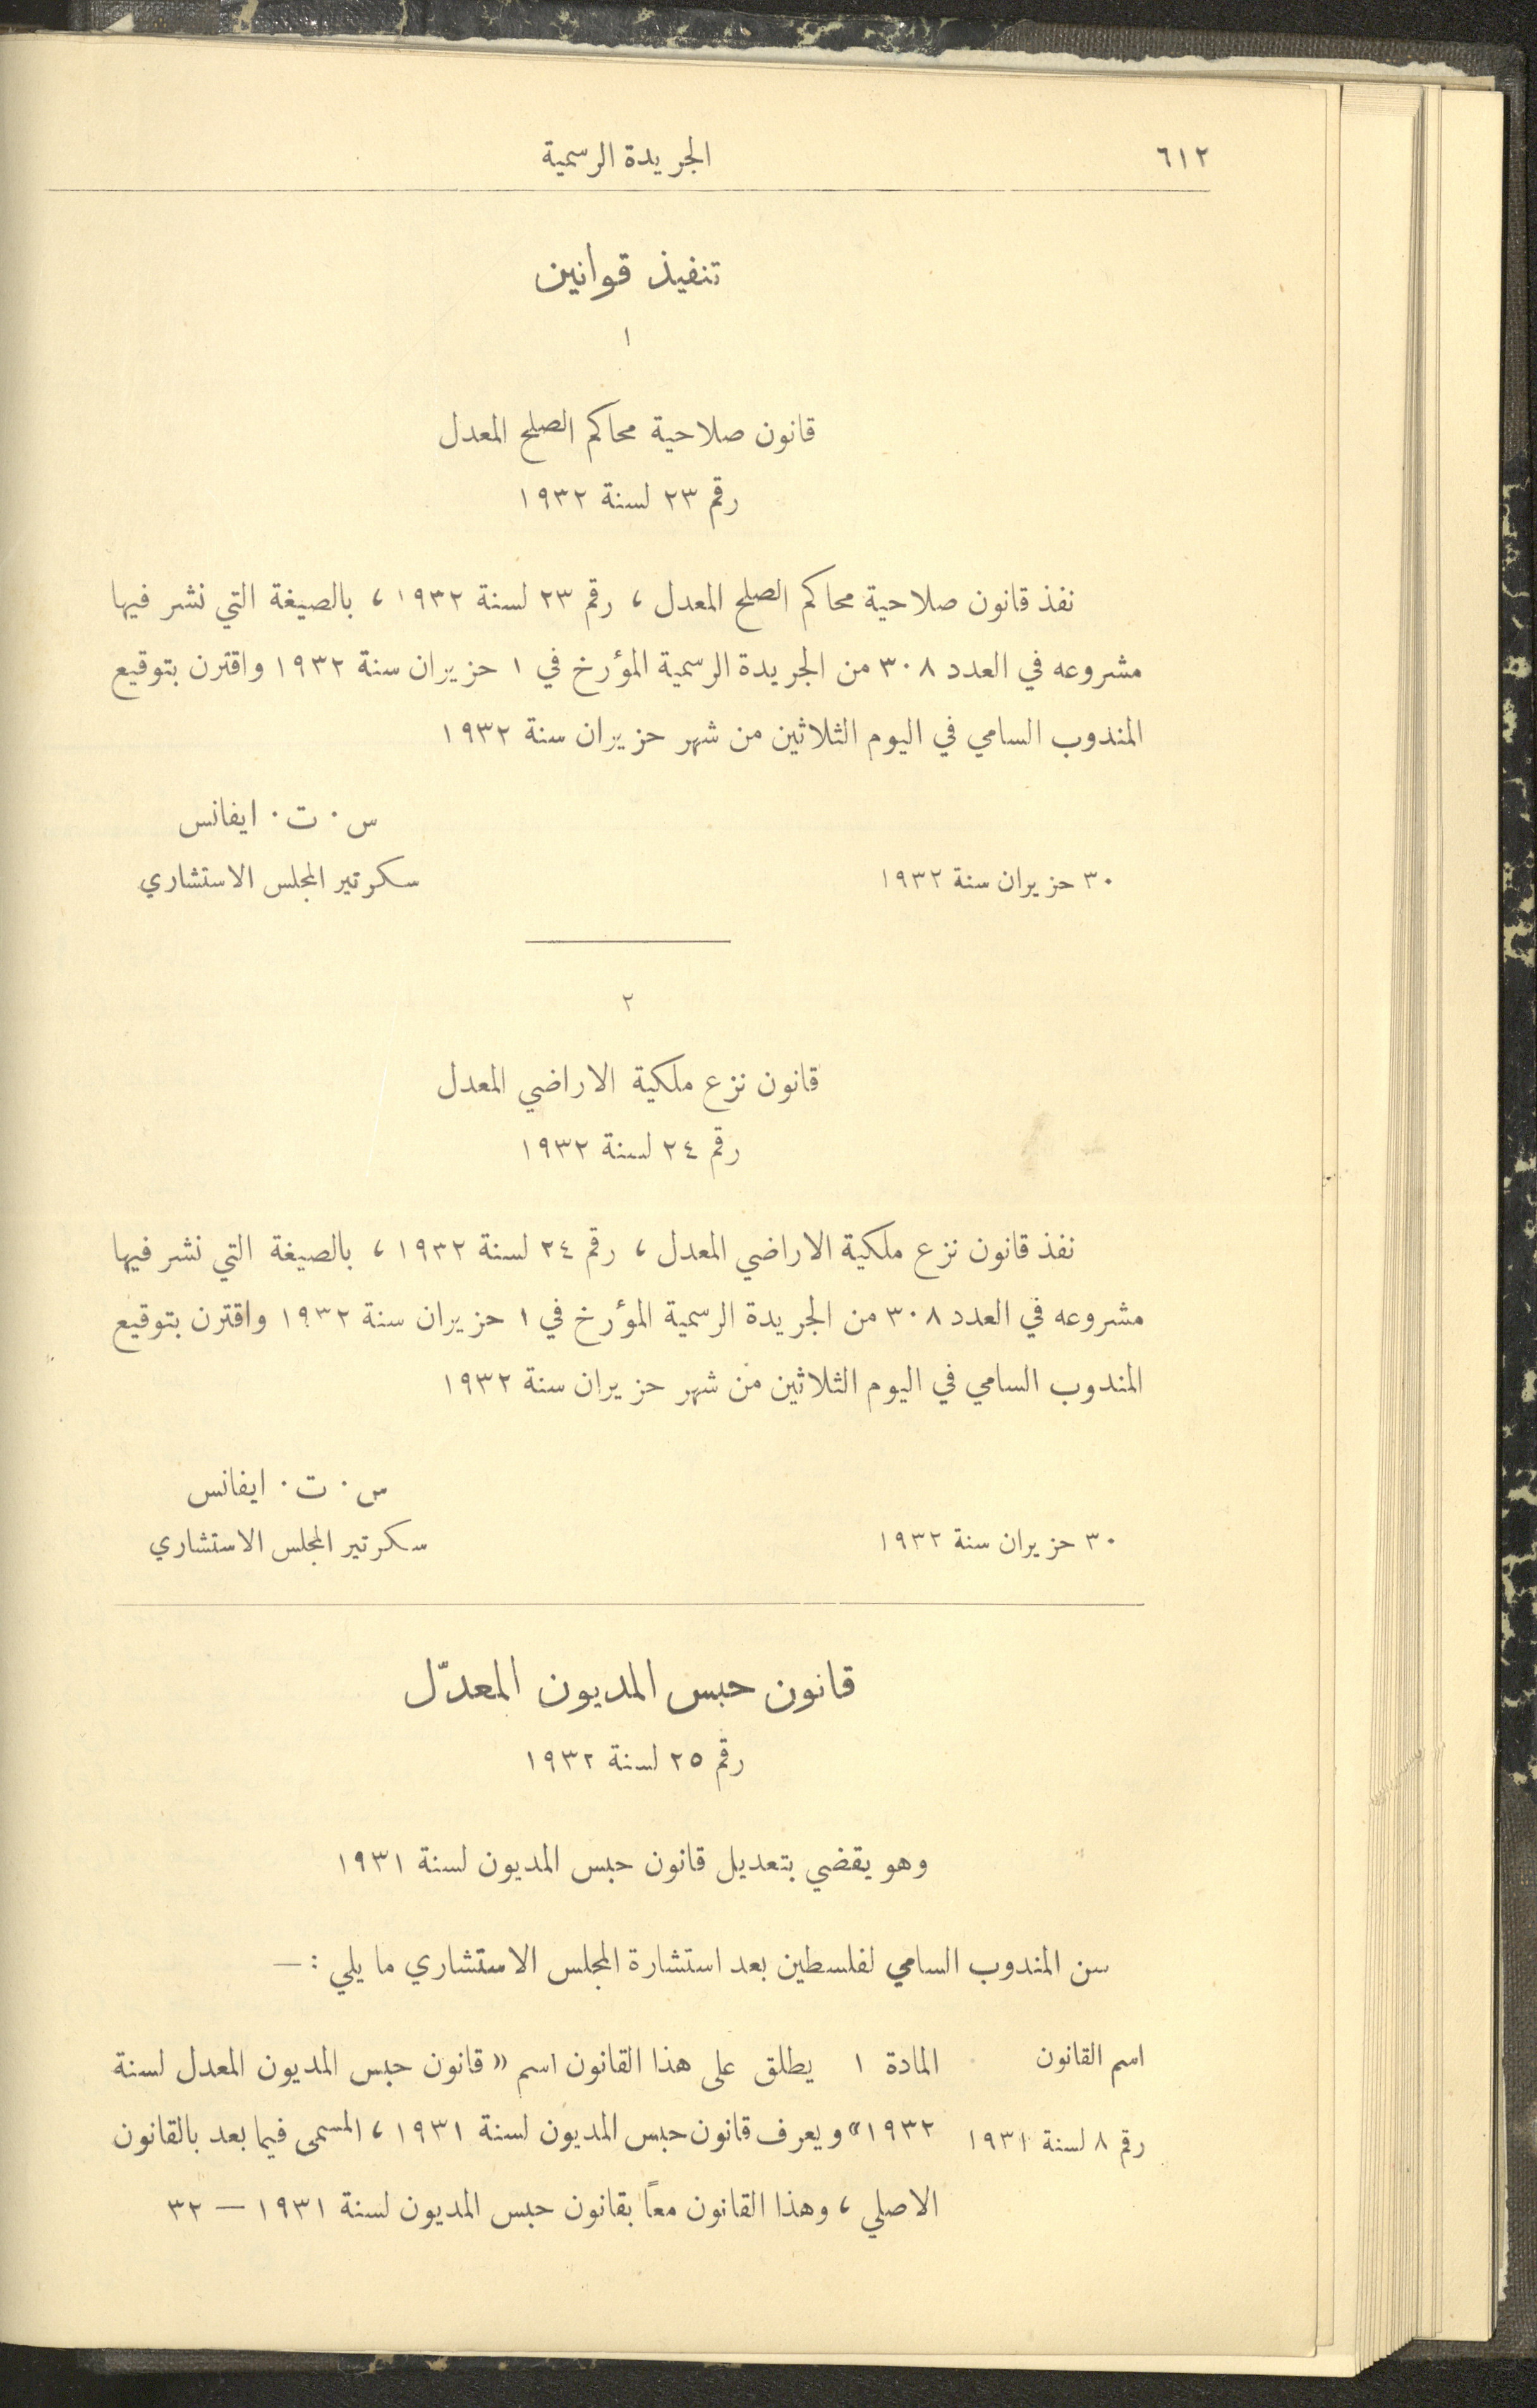 ٦١٢
الجريدة الرسمية
تنفيذ قوانين
١
قانون صلاحية محاكم الصلح المعدل
رقم ٢٣ لسنة ١٩٣٢
نفذ قانون صلاحية محاكم الصلح المعدل ، رقم ٢٣ لسنة ١٩٣٢ ، بالصيغة التي نشر فيها
مشروعه في العدد ٣٠٨ من الجريدة الرسمية المؤرخ في ١ حزيران سنة ١٩٣٢ واقترن بتوقيع
المندوب السامي في اليوم الثلاثين من شهر حزيران سنة ١٩٣٢
س٠ ت٠ ايفانس
٣٠ حزيران سنة ١٩٣٢
سكرتير المجلس الاستشاري
٢
قانون نزع ملكية الاراضي المعدل
رقم ٢٤ لسنة ١٩٣٢
نفذ قانون نزع ملكية الاراضي المعدل ، رقم ٢٤ لسنة ١٩٣٢ ، بالصيغة التي نشر فيها
مشروعه في العدد ٣٠٨ من الجريدة الرسمية المؤرخ في ١ حزيران سنة ١٩٣٢ واقترن بتوقيع
المندوب السامي في اليوم الثلاثين من شهر حزيران سنة ١٩٣٢
س٠ ت٠ ايفانس
٣٠ حزيران سنة ١٩٣٢
سكرتير المجلس الاستشاري
قانون حبس المديون المعدّل
رقم ٢٥ لسنة ١٩٣٢
وهو يقضي بتعديل قانون حبس المديون لسنة ١٩٣١
سن المندوب السامي لفلسطين بعد استشارة المجلس الاستشاري ما يلي : —
اسم القانون
المادة ١ يطلق على هذا القانون اسم « قانون حبس المديون المعدل لسنة
رقم ٨ لسنة ١٩٣١
١٩٣٢» ويعرف قانون حبس المديون لسنة ١٩٣١ ، المسمى فيما بعد بالقانون
الاصلي ، وهذا القانون معاً بقانون حبس المديون لسنة ١٩٣١ — ٣٢